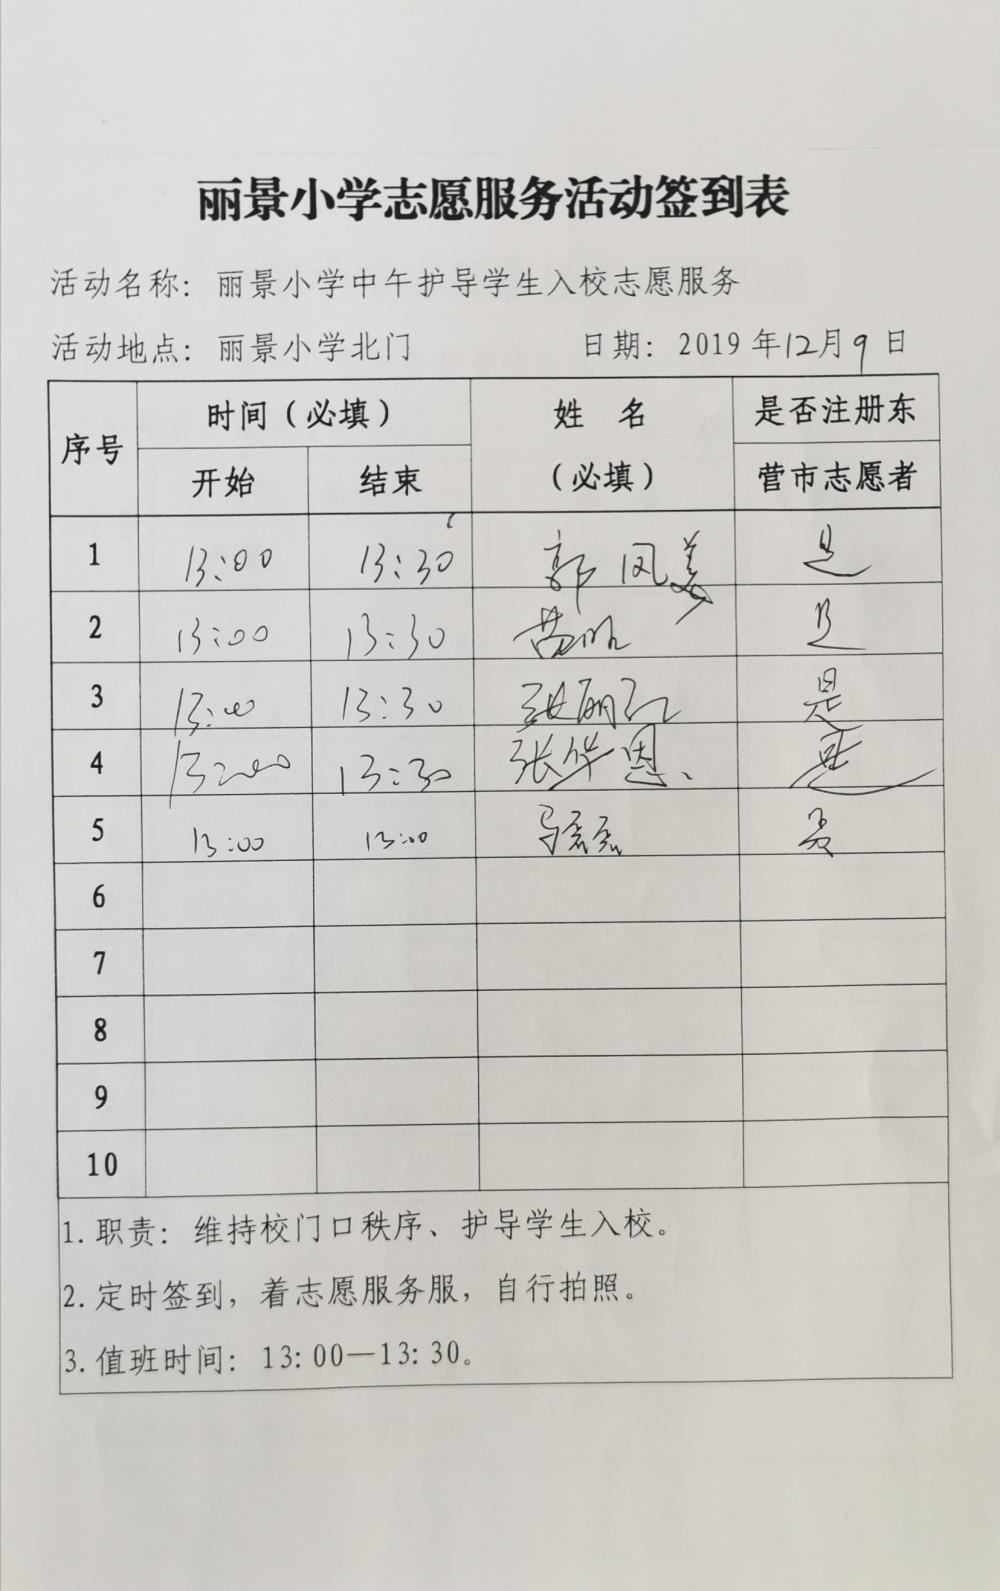 丽景小学志愿服务活动签到表
活动名称：丽景小学中午护导学生入校志愿服务
活动地点：丽景小学北门 日期：2019年12月9日
序号 时间（必填） 姓名（必填） 是否注册东营市志愿者
开始 结束
1 13:00 13:30 郭凤美 是
2 13:00 13:30 苗 是
3 13:00 13:30 张丽红 是
4 13:00 13:30 张华恩 是
5 13:00 13:00 马磊磊 否
6
7
8
9
10
1.职责：维持校门口秩序、护导学生入校。
2.定时签到，着志愿服务服，自行拍照。
3.值班时间：13:00—13:30。